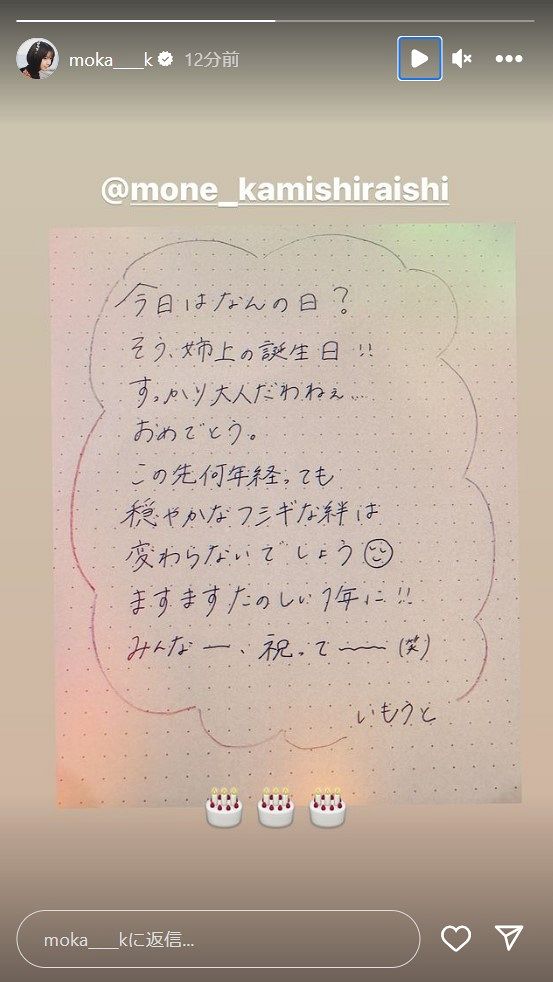 moka___k 12分前
@mone_kamishiraishi
今日はなんの日?
そう、姉上の誕生日!!
すっかり大人だわねぇ…
おめでとう。
この先何年経っても
穏やかなフシギな絆は
変わらないでしょう
ますますたのしい1年に!!
みんなー、祝って〜〜(笑)
いもうと
moka___kに返信...